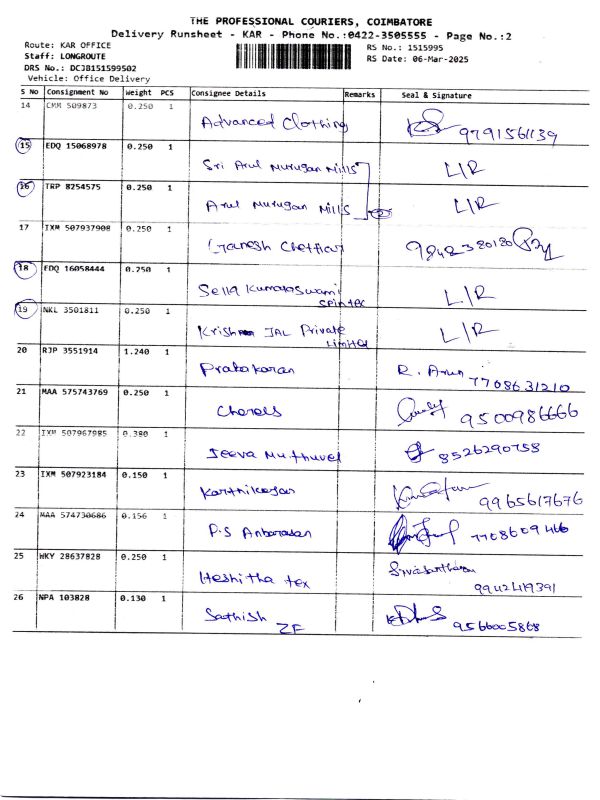 THE PROFESSIONAL COURIERS, COIMBATORE
Delivery Runsheet - KAR - Phone No.:0422-3505555 - Page No.:2
Route: KAR OFFICE RS No.: 1515995
Staff: LONGROUTE RS Date: 06-Mar-2025
DRS No.: DCJB151599502
Vehicle: Office Delivery
S No Consignment No Weight PCS Consignee Details Remarks Seal & Signature
14 CMM 509873 0.250 1
Advanced Clothing 9791561139
15 EDQ 15068978 0.250 1
Sri Arul Murugan Mills L/R
16 TRP 8254575 0.250 1
Arul Murugan Mills L/R
17 IXM 507937908 0.250 1
Ganesh Chettiar 9842320180
18 EDQ 16058444 0.250 1
Sella Kumaraswami L/R
Spintex
19 NKL 3501811 0.250 1
Krishna JAL Private L/R
Limited
20 RJP 3551914 1.240 1
Prabakaran R. Arun 7708631210
21 MAA 575743769 0.250 1
Cherels 9500986666
22 IXM 507967985 0.380 1
Jeeva Muthuvel 8526290758
23 IXM 507923184 0.150 1
Karthikeyan 9965617676
24 MAA 574730686 0.156 1
P.S Anbarasan 7708609466
25 WKY 28637828 0.250 1
Heshitha tex
9942419391
26 NPA 103828 0.130 1
Sathish 9566005868
ZF